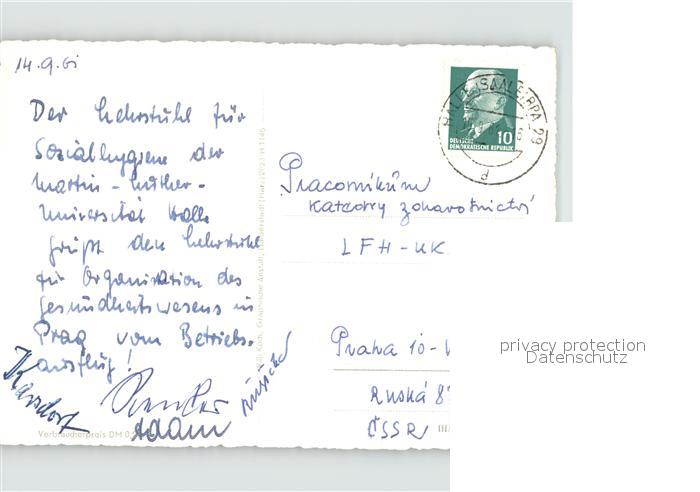 14.9.61
Der Lehrstuhl für
Sozialhygiene der
Martin-Luther-
Universität Halle
grüßt den Lehrstuhl
für Organisation des
Gesundheitswesens in
Prag vom Betriebs-
ausflug!
Karsdorf
Adam
Verbraucherpreis DM 0,
HALLE (SAALE)
29
d
10
DEUTSCHE
DEMOKRATISCHE REPUBLIK
Pracovníkům
katedry zdravotnictví
LFH-UK
Praha 10-V
Ruská 87
ČSSR
III
privacy protection
Datenschutz